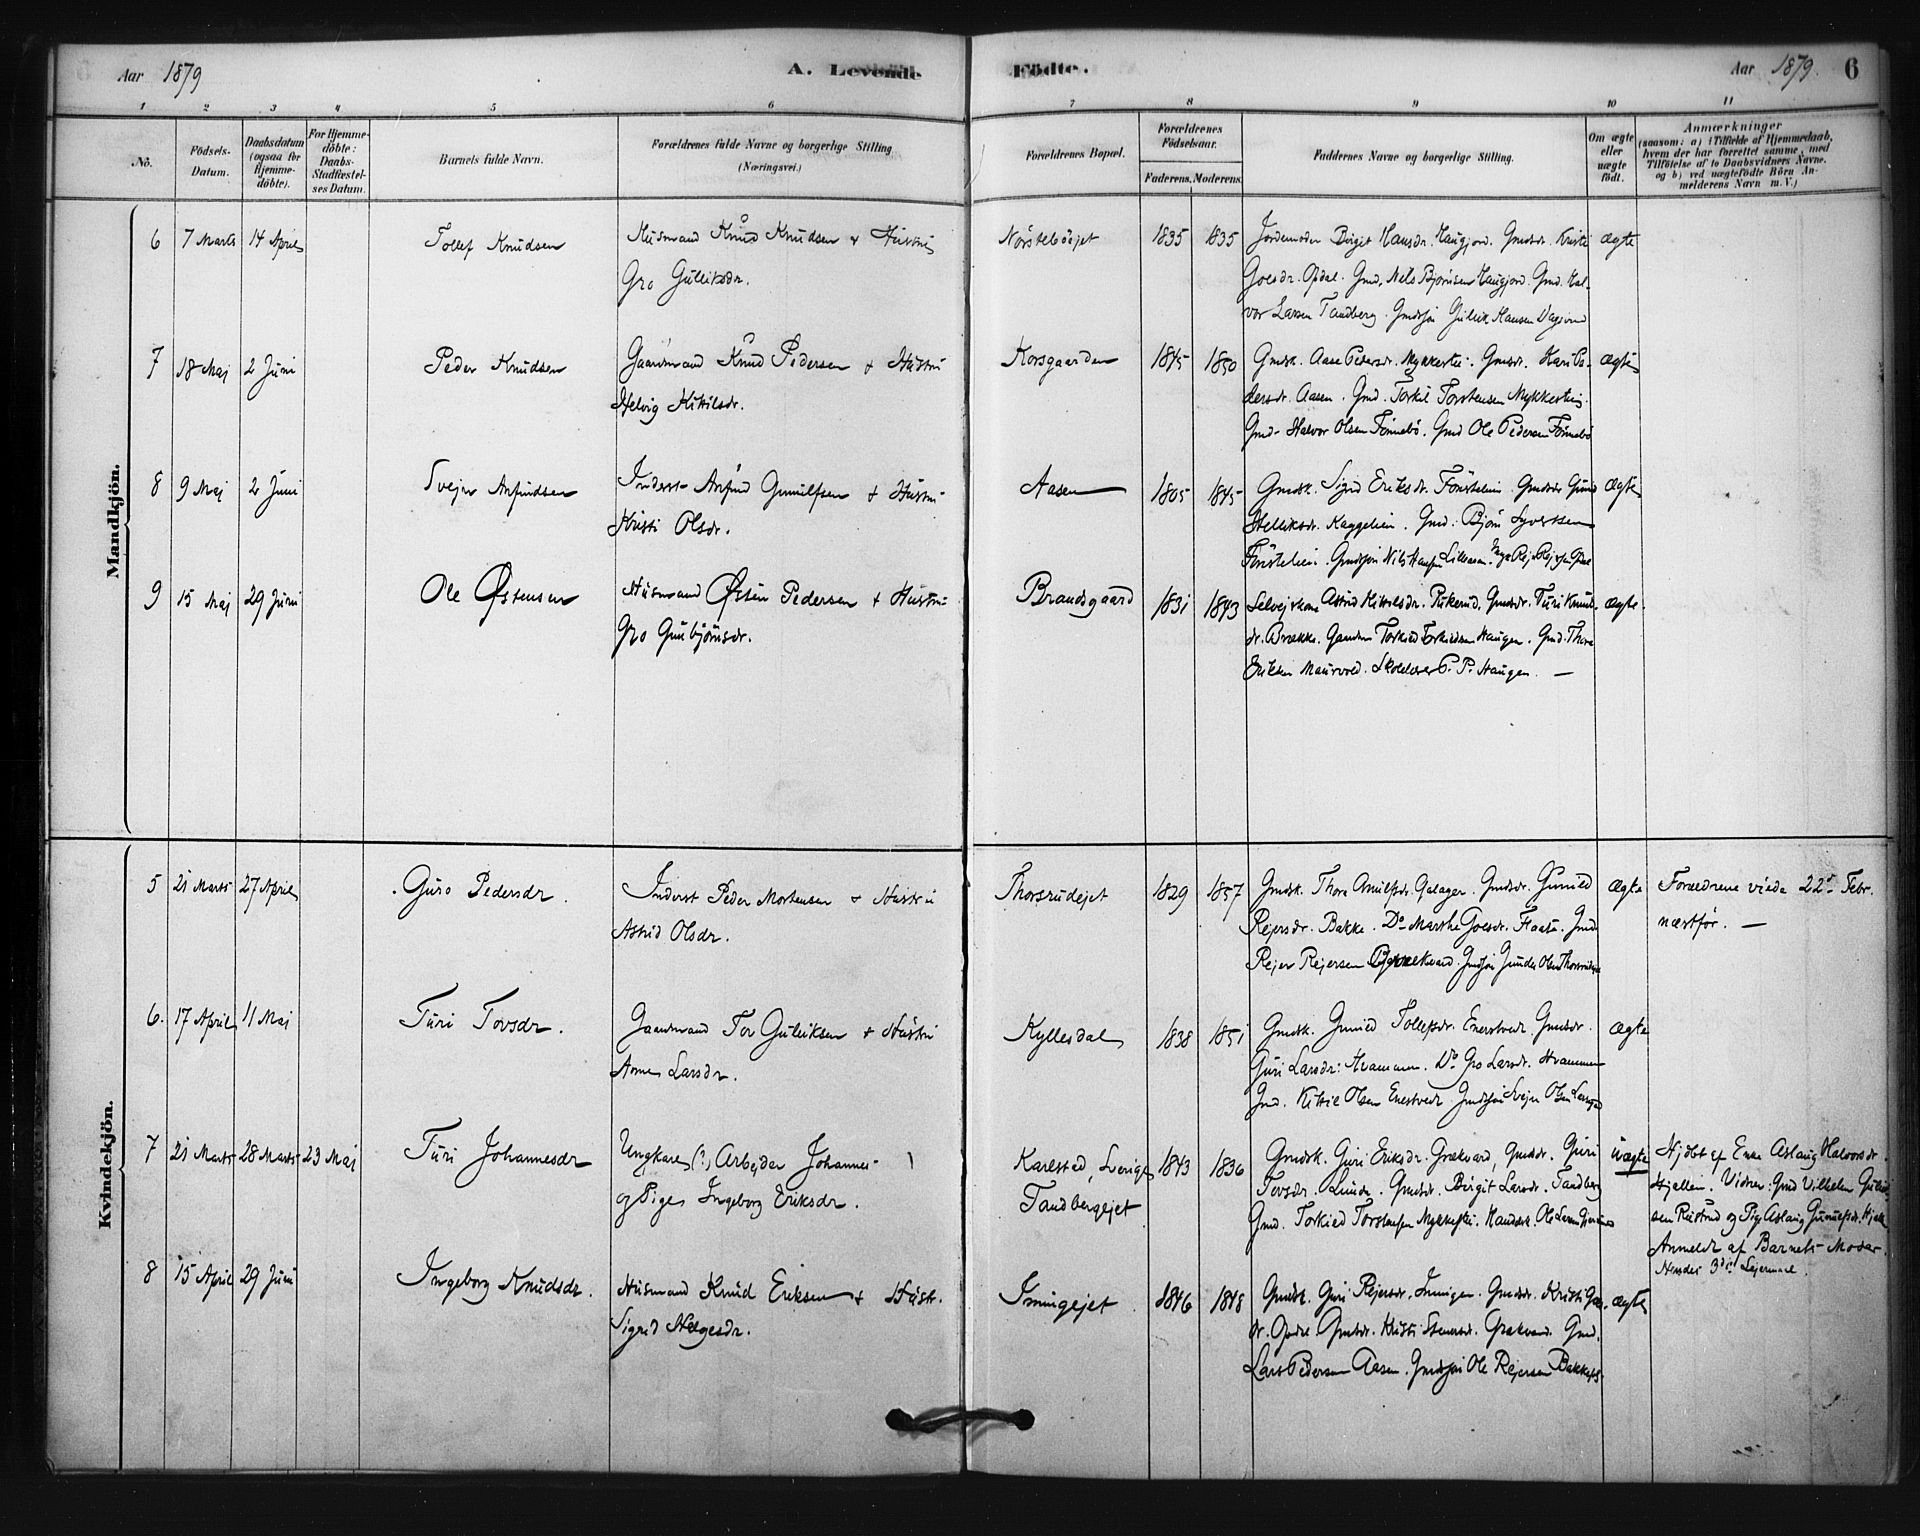 Aar 1879
A. Levende
Födte.
Aar 1879. 6
1 2 3 4 5 6 7 8 9 10 11
Nö.
Födsels-
Datum.
Daabsdatum
(ogsaa for
Hjemme-
döbte).
For Hjemme-
döbte:
Daabs-
Stadfæstel-
ses Datum.
Barnets fulde Navn.
Forældrenes fulde Navne og borgerlige Stilling
(Næringsvei.)
Forældrenes Bopæl.
Forældrenes
Födselsaar.
Faderens. Moderens.
Faddernes Navne og borgerlige Stilling.
Om ægte
eller
uægte
födt.
Anmærkninger
(saasom: a) i Tilfælde af Hjemmedaab,
hvem der har forrettet samme, med
Tilföielse af to Daabsvidners Navne.
og b) ved uægtefödte Börn An-
melderens Navn m. V.)
Mandkjön.
6 7 Marts 14 April Tollef Knudsen
Husmand Knud Knudsen + Hustru
Gro Gulliksdr.
1835 1835
Jordemoder Birgit Hansdr. Haugjord. Gmdsdr. Kristi
Goesdr. Opdal. Gmd. Nels Bjørnsen Haugjord. Gmd. Hal-
vor Larsen Tandberg. Gmdssøn Gullik Hansen
ægte
7 18 Maj 2 Juni Peder Knudsen
Gaardmand Knud Pedersen + Hustru
Helvig Kittilsdr.
Korsgaarden 1845 1850
Gmdsk. Aase Pedersdr. Mykkestu. Gmdsdr. Kari Pe-
dersdr. Aasen. Gmd. Torkil Torstensen Mykkestu.
Gmd. Halvor Olsen Fönnebö. Gmd Ole Pedersen Fönnebö
ægte
8 9 Maj 2 Juni Svejn Anfindsen
Inderst Anfind Gunulfsen + Hustru
Kristi Olsdr.
Aasen 1805 1845
Gmdsk. Sigrid Eriksdr. Fönstelien. Gmdsdr Gunild
Helliksdr. Kaggelien. Gmd. Bjørn Syvertsen
Fönstelien. Gmdssøn Nils
ægte
9 15 Maj 29 Juni Ole Østensen
Husmand Østen Pedersen + Hustru
Gro Gunbjørnsdr.
Brandsgaard 1831 1843
Selvejskone Astrid Kittilsdr. Rukerud. Gmdsdr. Turi Knuds-
dr. Brække. Torkild Torkildsen Haugen. Gmd. Thore
Eriksen Maurvold. Skolelærer P. P. Haugen. —
ægte.
Kvindekjön.
5 21 Marts 27 April Guro Pedersdr.
Inderst Peder Mortensen + Hustru
Astrid Olsdr.
Thorsrudejet 1829 1857
Gmdsk. Thore Gmdsdr. Gunild
Rejersdr. Bakke. Do Marthe Goesdr. Flaata. Gmd
Rejer Rejersen Gmdssøn Gunder Olsen Thorsrud
ægte
Forældrene viede 22de Febr.
næstfør. —
6. 17 April 11 Maj Turi Torsdr.
Gaardmand Tor Gulliksen + Hustru
Anne Larsdr.
Kyllesdal 1838 1851
Gmdsk. Gunild Tollefsdr. Enerstvedt. Gmdsdr.
Guri Larsdr. Hvammen. Do Gro Larsdr. Hvammen
Gmd. Kittil Olsen Enestvedt. Gmdssøn Svejn Olsen
ægte
7 21 Marts 28 Marts 23 Maj Turi Johannesdr
Ungkarl (?), Arbejder Johannes
og Pige Ingeborg Eriksdr.
Karlstad, Sverige
Tandbergejet
1843 1836
Gmdsk. Guri Eriksdr. Grækvard, Gmdsdr. Guri
Torsdr. Gmdsdr. Birgit Larsdr. Tandberg
Gmd. Torkild Torstensen Mykkestu. Ole Larsen
uægte
Hjdbt af Enke Aslaug Halvorsdr.
Hjallen. Vidner: Gmd Vilhelm Gullik-
sen Rustand og Pige Aslaug Gunulfsdr.
Anmeldt af Barnets Moder.
Hendes 3die Lejermaal.
8 15 April 29 Juni Ingeborg Knudsdr.
Husmand Knud Eriksen + Hustr.
Sigrid Helgesdr.
Imingejet 1846 1848
Gmdsk. Guri Rejersdr. Imingen. Gmdsdr. Kristi
Gmdsdr. Kristi Grækvard. Gmd.
Lars Pedersen Aasen. Gmdssøn Ole Rejersen Bakke.
ægte